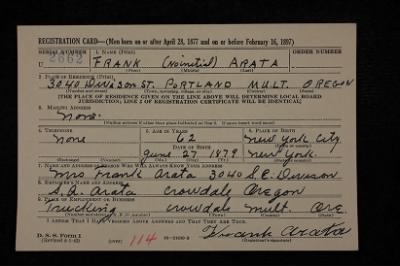 REGISTRATION CARD—(Men born on or after April 28, 1877 and on or before February 16, 1897)
SERIAL NUMBER 1. NAME (Print) ORDER NUMBER
U 2662 FRANK (No initial) ARATA
(First) (Middle) (Last)
2. PLACE OF RESIDENCE (Print)
3040 Division St. PORTLAND MULT. OREGON
(Number and street) (Town, township, village, or city) (County) (State)
[THE PLACE OF RESIDENCE GIVEN ON THE LINE ABOVE WILL DETERMINE LOCAL BOARD
JURISDICTION; LINE 2 OF REGISTRATION CERTIFICATE WILL BE IDENTICAL]
3. MAILING ADDRESS
None
[Mailing address if other than place indicated on line 2. If same insert word same]
4. TELEPHONE 5. AGE IN YEARS 6. PLACE OF BIRTH
none 62 New York City
DATE OF BIRTH (Town or county)
June 27 1879 New York.
(Exchange) (Number) (Mo.) (Day) (Yr.) (State or country)
7. NAME AND ADDRESS OF PERSON WHO WILL ALWAYS KNOW YOUR ADDRESS
Mrs Frank Arata 3040 S.E. Division
8. EMPLOYER'S NAME AND ADDRESS
S. A. Arata Crowdale Oregon
9. PLACE OF EMPLOYMENT OR BUSINESS
Trucking crowdale Mult. Ore.
(Number and street or R. F. D. number) (Town) (County) (State)
I AFFIRM THAT I HAVE VERIFIED ABOVE ANSWERS AND THAT THEY ARE TRUE.
D. S. S. Form 1
(Revised 4-1-42) (over) 114 Frank Arata